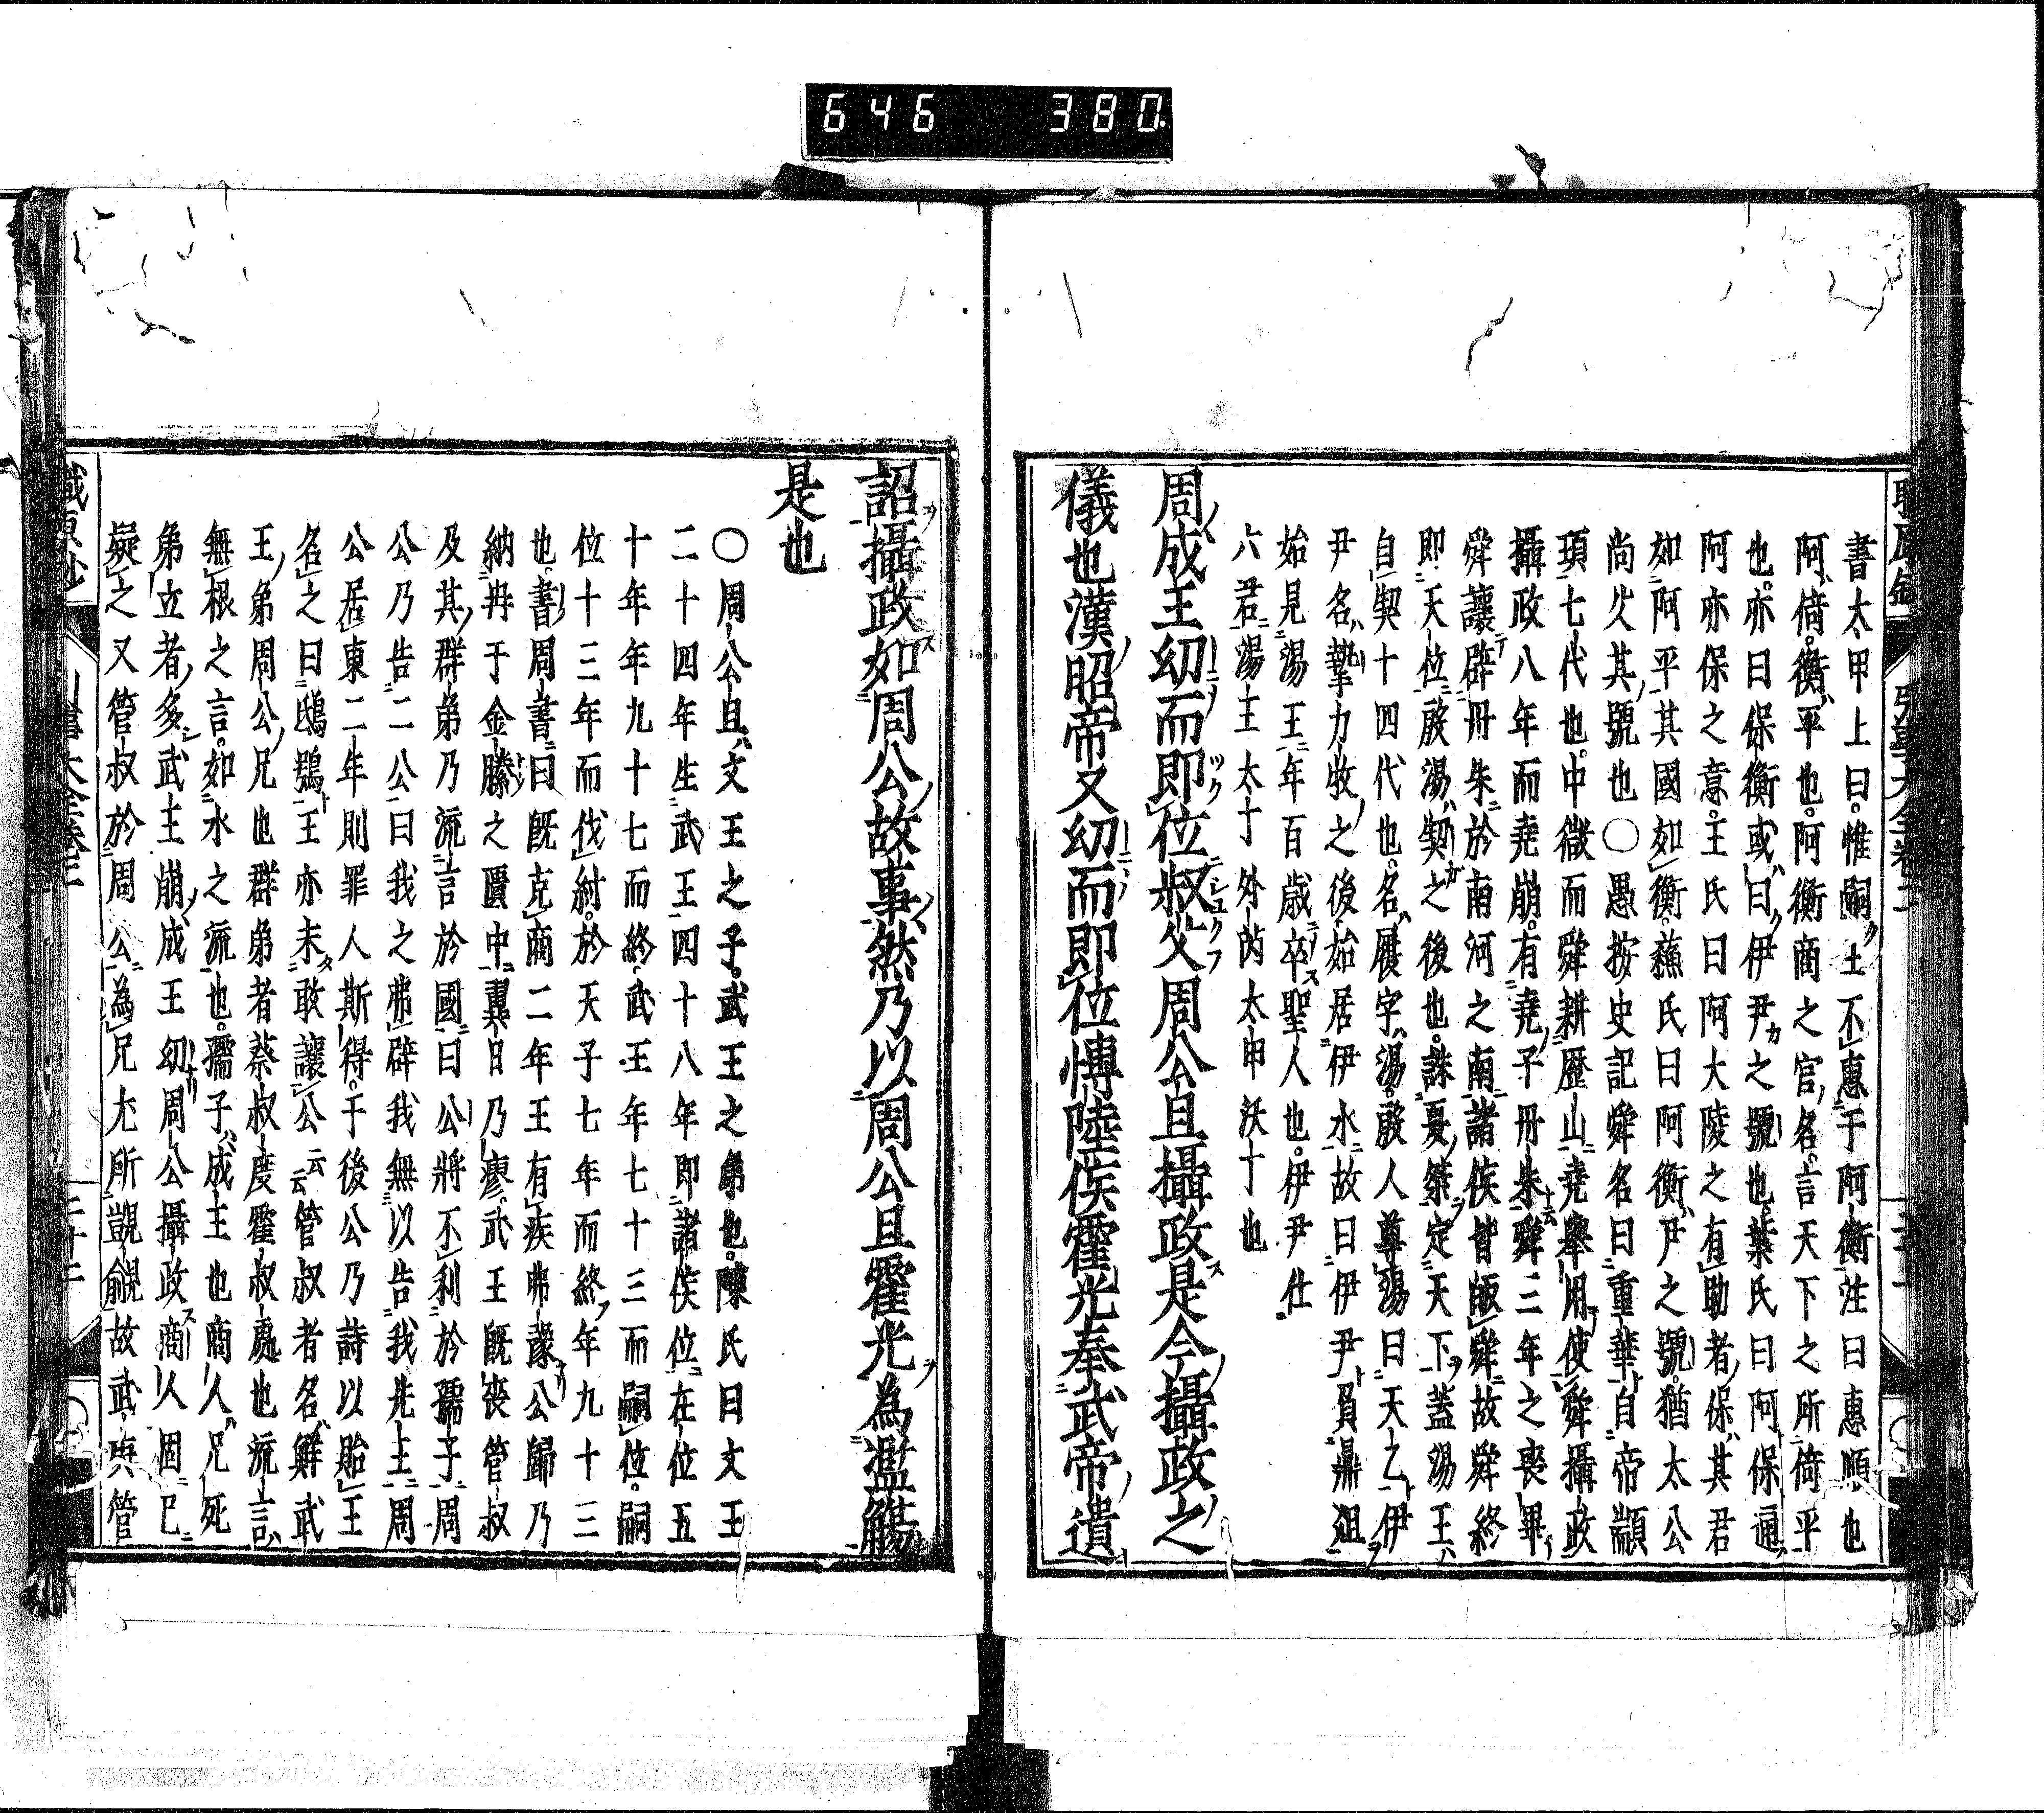 646 380
書太甲上曰惟嗣王不惠于阿衡注曰惠順也
阿倚衡平也阿衡商之官名言天下之所倚平
也亦曰保衡或曰伊尹之號也葉氏曰阿保通
阿亦保之意王氏曰阿大陵之有助者保其君
如阿平其國如衡蘇氏曰阿衡尹之號猶太公
尚父其號也○愚按史記舜名曰重華自帝顓
頊七代也中微而舜耕歷山堯舉用使舜攝政
攝政八年而堯崩有堯子丹朱云舜三年之喪畢
舜讓辟丹朱於南河之南諸侯皆敀舜故舜終
即天位殷湯契之後也誅夏桀定天下蓋湯王
自契十四代也名履字湯殷人尊湯曰天乙伊
尹名摯力牧之後始居伊水故曰伊尹負鼎俎
始見湯王年百歲卒聖人也伊尹仕
六君湯王太丁外丙太甲沃丁也
周成王幼而即位叔父周公旦攝政是今攝政之
儀也漢昭帝又幼而即位博陸侯霍光奉武帝遺
詔攝政如周公故事然乃以周公旦霍光為濫觴
是也
○周公旦文王之子武王之弟也陳氏曰文王
二十四年生武王四十八年即諸侯位在位五
十年年九十七而終武王年七十三而嗣位嗣
位十三年而伐紂於天子七年而終年九十三
也書周書曰既克商二年王有疾弗豫公歸乃
納冊于金縢之匱中翼日乃瘳武王既喪管叔
及其群弟乃流言於國曰公將不利於孺子周
公乃告二公曰我之弗辟我無以告我先王周
公居東二年則罪人斯得于後公乃詩以貽王
名之曰鴟鴞王亦未敢讓公云云管叔者名鮮武
王弟周公兄也群弟者蔡叔度霍叔處也流言
無根之言如水之流也孺子成王也商人兄死
弟立者多武王崩成王幼周公攝政商人固已
疑之又管叔於周公為兄尤所覬覦故武庚管